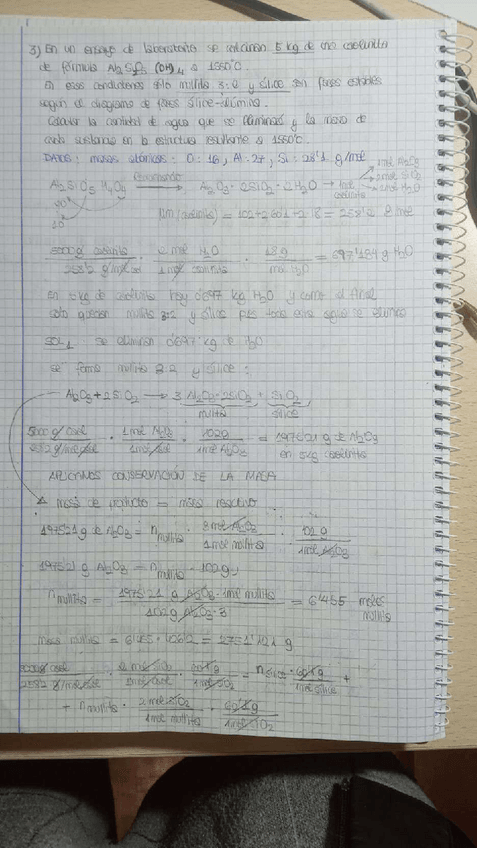 3) En un ensayo de laboratorio se calcinan 5 kg de una caolinita
de fórmula Al₂Si₂O₅ (OH)₄ a 1550°C.
En esas condiciones solo mullita 3:2 y sílice son fases estables
según el diagrama de fases sílice-alúmina.
Calcular la cantidad de agua que se eliminará y la masa de
cada sustancia en la estructura resultante a 1550°C.
DATOS: masas atómicas: O: 16, Al: 27, Si: 28'1 g/mol
Al₂Si₂O₅ H₄O₄ → Al₂O₃·2SiO₂·2H₂O → 1mol caolinita
1mol Al₂O₃
2mol SiO₂
2mol H₂O
Pm (caolinita) = 102+2·60'1+2·18 = 258'2 g/mol
5000g caolinita / 258'2 g/mol · 2 mol H₂O / 1 mol caolinita · 18 g / mol H₂O = 697'134 g H₂O
En 5 kg de caolinita hay 0'697 kg H₂O y como al final
solo quedan mullita 3:2 y sílice pues toda esta agua se elimina
se eliminan 0'697 kg de H₂O
se forma mullita 3:2 y sílice:
Al₂O₃ + 2SiO₂ → 3 Al₂O₃·2SiO₂ + SiO₂
mullita sílice
5000 g caol / 258'2 g/mol caol · 1 mol Al₂O₃ / 1 mol caol · 102g / 1 mol Al₂O₃ = 1975'21 g de Al₂O₃
en 5 kg caolinita
APLICAMOS CONSERVACIÓN DE LA MASA
masa de producto = masa reactivo
1975'21 g de Al₂O₃ = n mullita · 3 mol Al₂O₃ / 1 mol mullita · 102 g / 1 mol Al₂O₃
1975'21 g Al₂O₃ = n mullita
n mullita = 1975'21 g Al₂O₃ · 1mol mullita / 102 g Al₂O₃ · 3 = 6'455 moles
mullita
masa mullita = 6'455 · 426'2 = 2751'121 g
5000g caol / 258'2 g/mol caol · 2 mol SiO₂ / 1 mol caol · 60'1 g / 1 mol SiO₂ = n sílice · 60'1 g / 1 mol sílice +
+ n mullita · 2 mol SiO₂ / 1 mol mullita · 60'1 g / 1 mol SiO₂